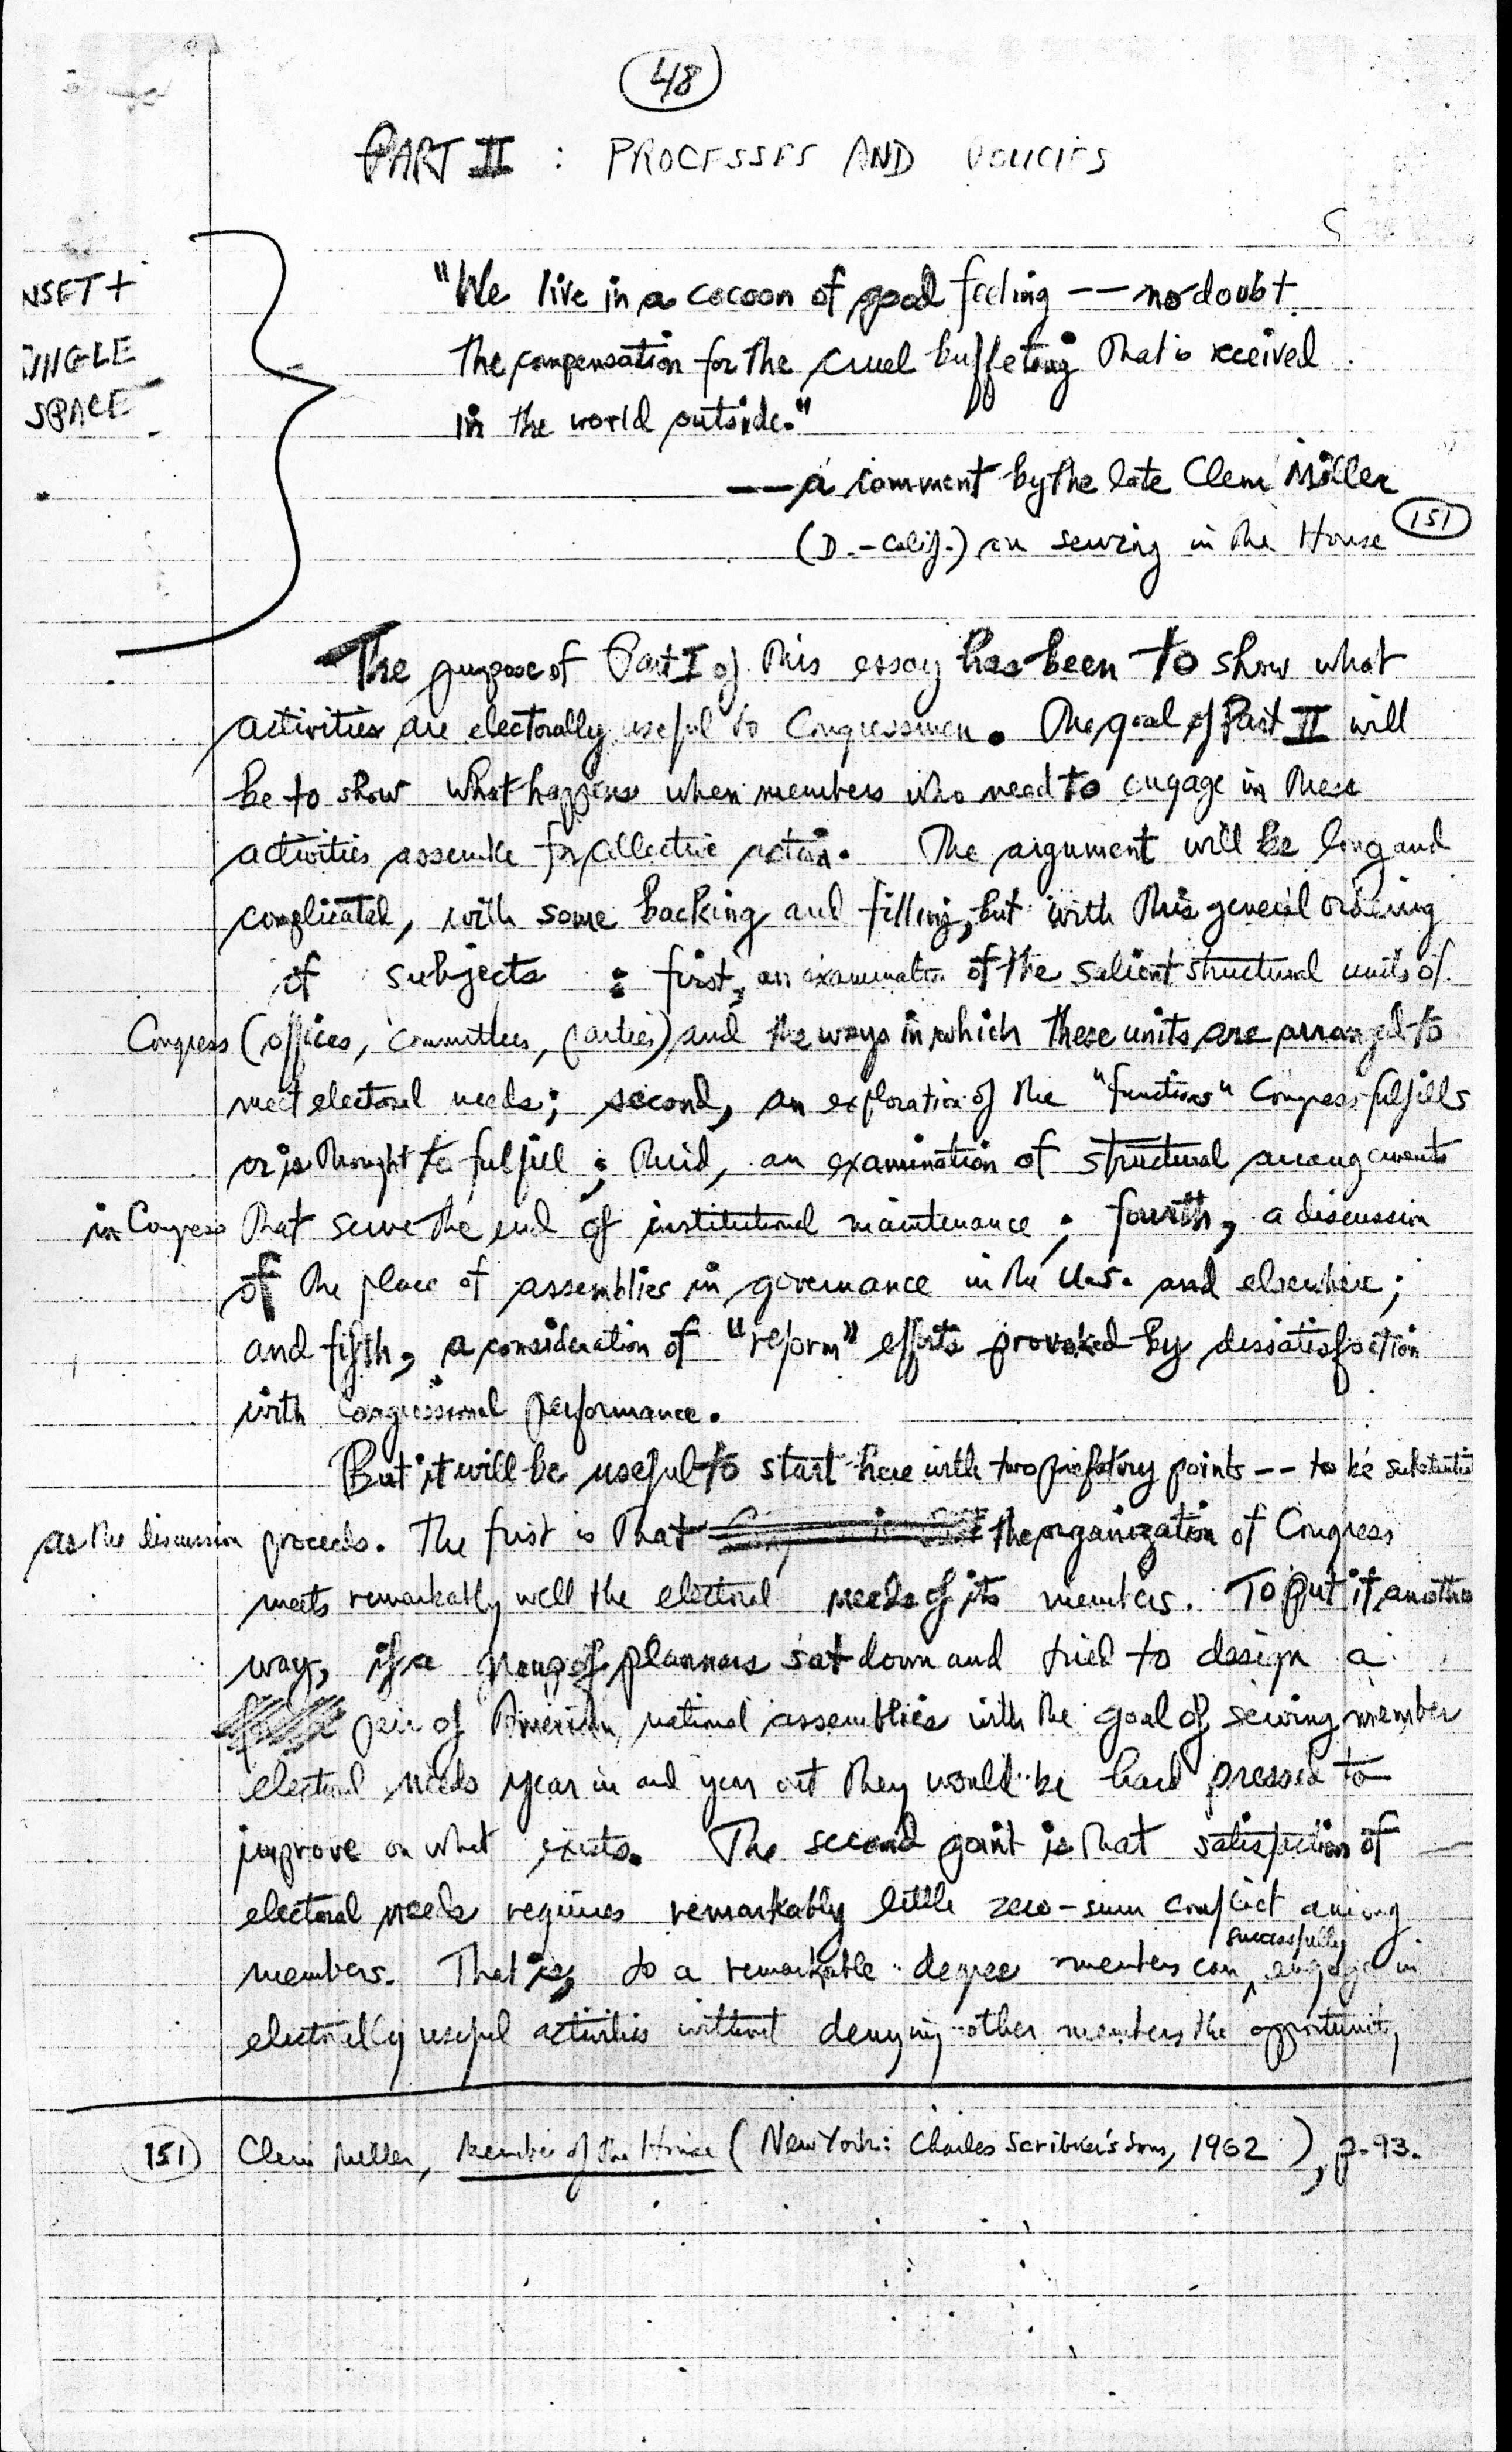 48
PART II : PROCESSES AND POLICIES
NSET +
INGLE
SPACE
"We live in a cocoon of good feeling -- no doubt
the compensation for the cruel buffeting that is received
in the world outside."
-- a comment by the late Clem Miller
(D.-Calif.) on serving in the House 151
The purpose of Part I of this essay has been to show what
activities are electorally useful to Congressmen. The goal of Part II will
be to show what happens when members who need to engage in these
activities assemble for collective action. The argument will be long and
complicated, with some backing and filling, but with this general ordering
of subjects : first, an examination of the salient structural units of
Congress (offices, committees, parties) and the ways in which these units are arranged to
meet electoral needs; second, an exploration of the "functions" Congress fulfills
or is thought to fulfill ; third, an examination of structural arrangements
in Congress that serve the end of institutional maintenance ; fourth, a discussion
of the place of assemblies in governance in the U.S. and elsewhere;
and fifth, a consideration of "reform" efforts provoked by dissatisfaction
with congressional performance.
But it will be useful to start here with two prefatory points -- to be
as the discussion proceeds. The first is that the organization of Congress
meets remarkably well the electoral needs of its members. To put it another
way, if a group of planners sat down and tried to design a
pair of American national assemblies with the goal of serving member
electoral needs year in and year out they would be hard pressed to
improve on what exists. The second point is that satisfaction of
electoral needs requires remarkably little zero-sum conflict among
members. That is, to a remarkable degree members can successfully engage in
electorally useful activities without denying other members the opportunity
151 Clem Miller, Member of the House (New York: Charles Scribner's Sons, 1962), p. 93.